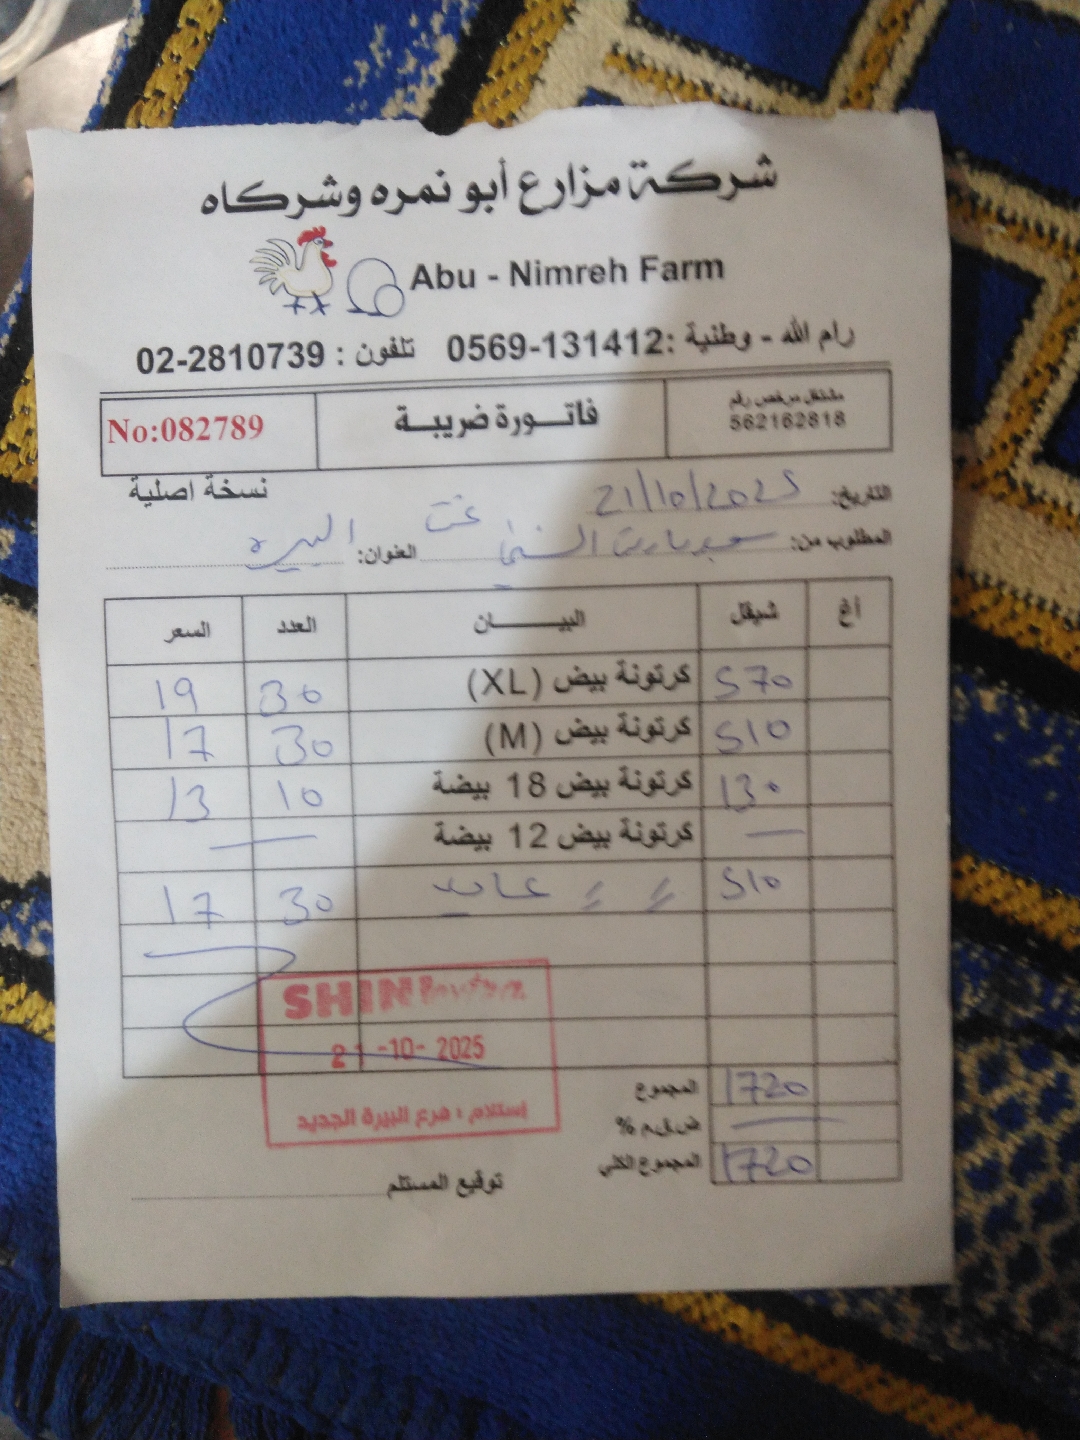 شركة مزارع أبو نمره وشركاه
Abu - Nimreh Farm
رام الله - وطنية :0569-131412 تلفون : 02-2810739
مشتغل مرخص رقم
562162818
فاتـــورة ضريبـــة
No:082789
نسخة اصلية
التاريخ: 21/10/2025
المطلوب من: سوبرماركت الشني العنوان: البيره
أغ شيقل البيـــــــان العدد السعر
570 كرتونة بيض (XL) 30 19
510 كرتونة بيض (M) 30 17
130 كرتونة بيض 18 بيضة 10 13
— كرتونة بيض 12 بيضة —
510 〃 〃 30 17
SHINI extra
21-10-2025
إستلام : فرع البيرة الجديد
المجموع 1720
ض.ق.م % —
المجموع الكلي 1720
توقيع المستلم